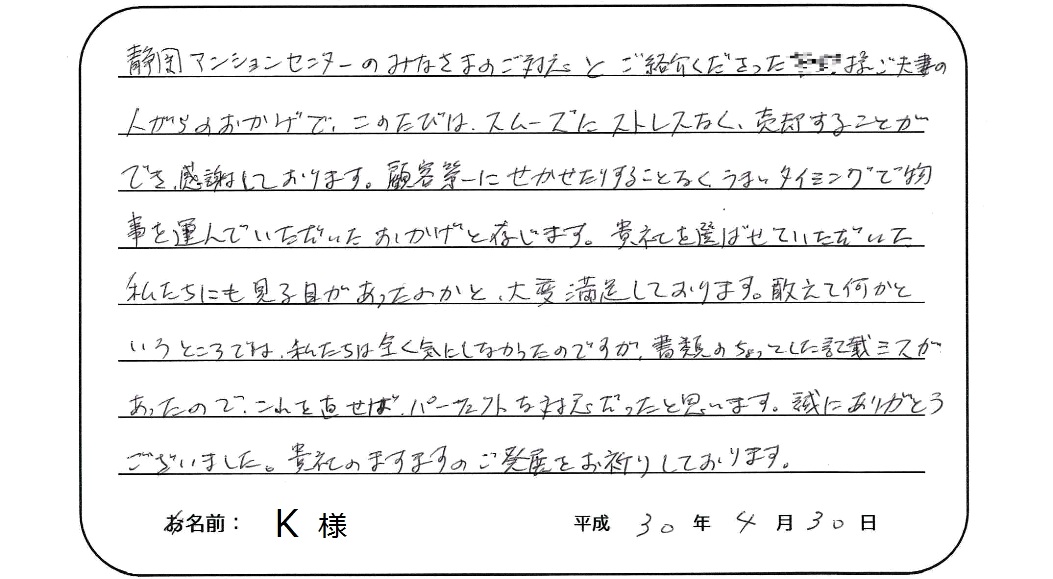 静岡マンションセンターのみなさまのご対応とご紹介くださった様ご夫妻の
人がらのおかげで、このたびは、スムーズにストレスなく、売却することが
でき、感謝しております。顧客第一にせかせたりすることなく、うまいタイミングで物
事を運んでいただいたおかげと存じます。貴社を選ばせていただいた
私たちにも見る目があったのかと、大変満足しております。敢えて何かと
いうところでは、私たちは全く気にしなかったのですが、書類のちょっとした記載ミスが
あったので、これを直せば、パーフェクトな対応だったと思います。誠にありがとう
ございました。貴社のますますのご発展をお祈りしております。
お名前： K 様 平成 30 年 4 月 30 日